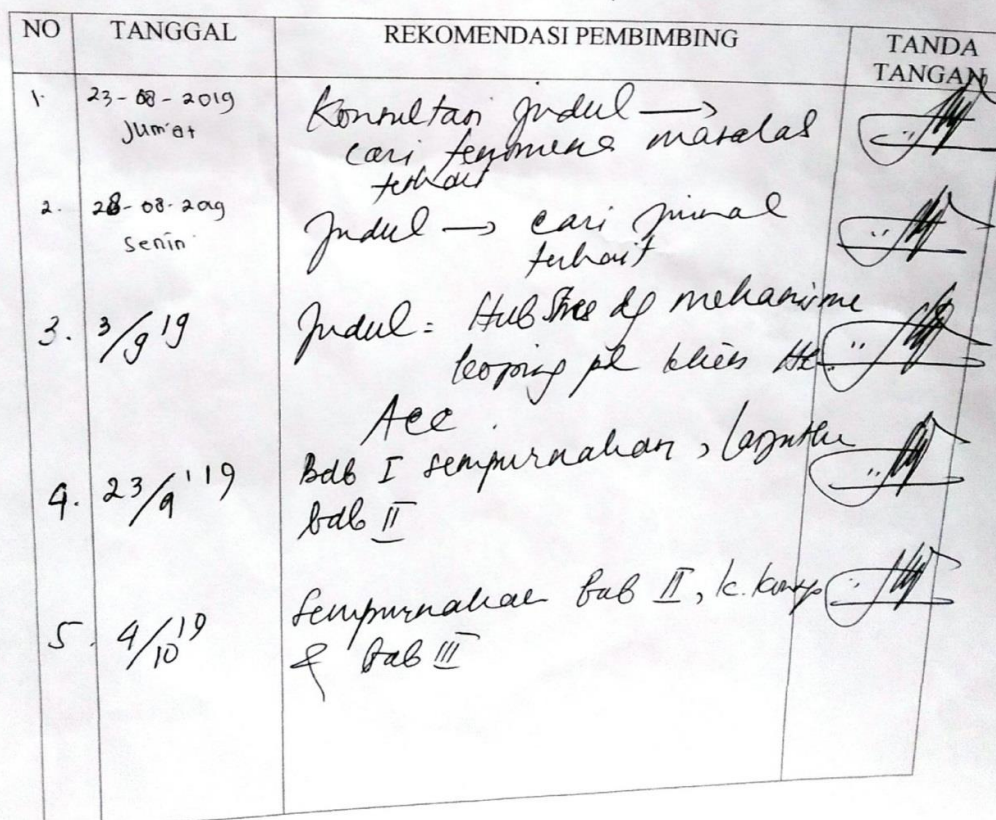 NO TANGGAL REKOMENDASI PEMBIMBING TANDA
TANGAN
1. 23-08-2019 Konsultasi judul →
Jum'at cari fenomena masalah
terkait
2. 28-08-2019 Judul → cari jurnal
Senin terkait
3. 3/9 19 Judul = Hub Stres dg mekanisme
koping pd klien
Acc
4. 23/9 '19 Bab I sempurnakan,
bab II
5. 4/10 '19 Sempurnakan bab II, k.
& bab III